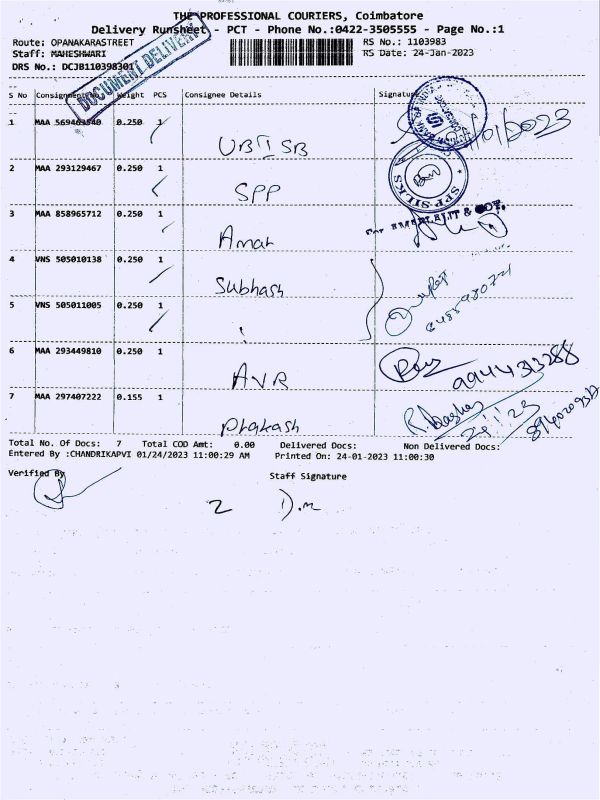 THE PROFESSIONAL COURIERS, Coimbatore
Delivery Runsheet - PCT - Phone No.:0422-3505555 - Page No.:1
Route: OPANAKARASTREET
RS No.: 1103983
Staff: MAHESHWARI
RS Date: 24-Jan-2023
DRS No.: DCJB110398301
DOCUMENT DELIVERY
S No Consignment No. Weight PCS Consignee Details Signature
1 MAA 0.250 1
2 MAA 293129467 0.250 1 SPP
SPP SILKS
3 MAA 858965712 0.250 1 Amar
For
4 VNS 505010138 0.250 1 Subhash
5 VNS 505011005 0.250 1
6 MAA 293449810 0.250 1 AVR
9944313288
7 MAA 297407222 0.155 1 Prakash
Total No. Of Docs: 7 Total COD Amt: 0.00 Delivered Docs: Non Delivered Docs:
Entered By :CHANDRIKAPVI 01/24/2023 11:00:29 AM Printed On: 24-01-2023 11:00:30
Verified By
Staff Signature
2